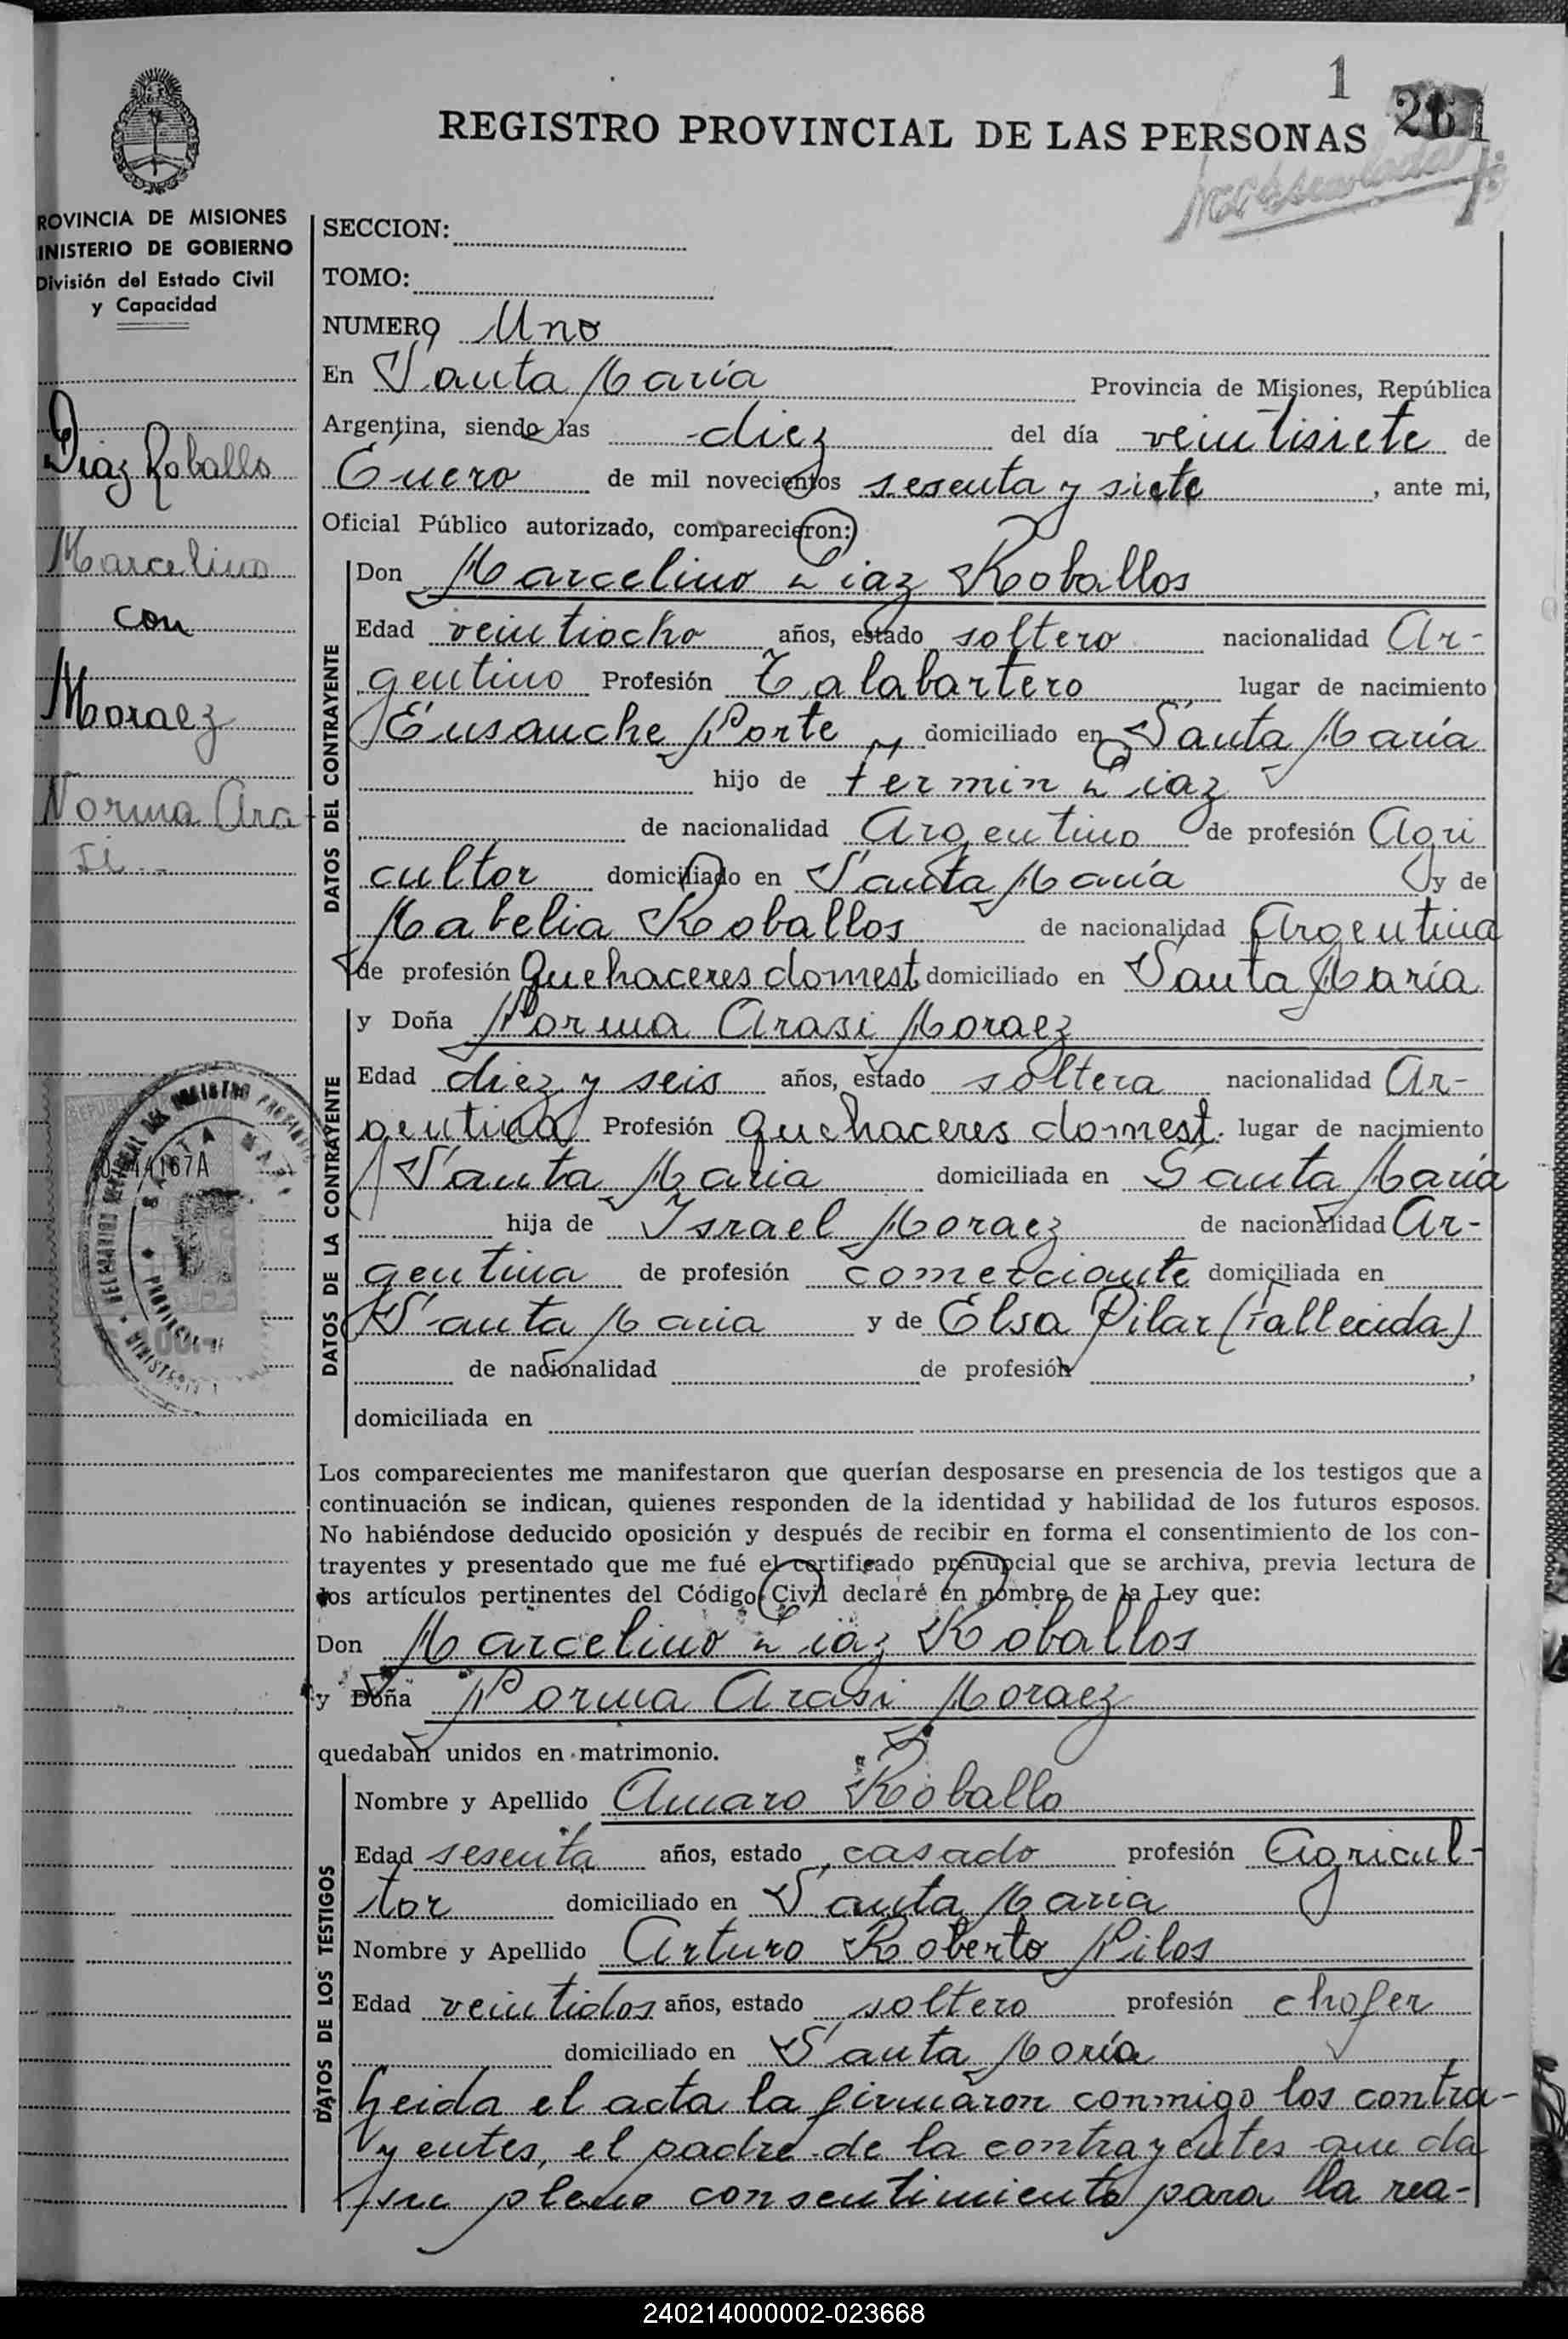 1
261
REGISTRO PROVINCIAL DE LAS PERSONAS
ROVINCIA DE MISIONES
INISTERIO DE GOBIERNO
División del Estado Civil
y Capacidad
Diaz Roballo
Marcelino
con
Moraez
Norma Ara
si.--
SECCION:
TOMO:
NUMERO Uno
En Santa María Provincia de Misiones, República
Argentina, siendo las -diez del día veintisiete de
Enero de mil novecientos sesenta y siete, ante mi,
Oficial Público autorizado, comparecieron:
DATOS DEL CONTRAYENTE
Don Marcelino Diaz Roballos
Edad veintiocho años, estado soltero nacionalidad Ar-
gentino Profesión Talabartero lugar de nacimiento
Ensanche Norte domiciliado en Santa María
hijo de Fermin Diaz
de nacionalidad Argentino de profesión Agri
cultor domiciliado en Santa María y de
Mabelia Roballos de nacionalidad Argentina
de profesión Quehaceres domest. domiciliado en Santa María
DATOS DE LA CONTRAYENTE
y Doña Norma Arasi Moraez
Edad diez y seis años, estado soltera nacionalidad Ar-
gentina Profesión Quehaceres domest. lugar de nacimiento
Santa Maria domiciliada en Santa María
hija de Israel Moraez de nacionalidad Ar-
gentina de profesión comerciante domiciliada en
Santa Maria y de Elsa Pilar (Fallecida)
de nacionalidad de profesión ,
domiciliada en
Los comparecientes me manifestaron que querían desposarse en presencia de los testigos que a
continuación se indican, quienes responden de la identidad y habilidad de los futuros esposos.
No habiéndose deducido oposición y después de recibir en forma el consentimiento de los con-
trayentes y presentado que me fué el certificado prenupcial que se archiva, previa lectura de
los artículos pertinentes del Código Civil declaré en nombre de la Ley que:
Don Marcelino Diaz Roballos
y Doña Norma Arasi Moraez
quedaban unidos en matrimonio.
DATOS DE LOS TESTIGOS
Nombre y Apellido Amaro Roballo
Edad sesenta años, estado casado profesión Agricul-
tor domiciliado en Santa Maria
Nombre y Apellido Arturo Roberto Pilos
Edad veintidos años, estado soltero profesión chofer
domiciliado en Santa María
Leida el acta la firmaron conmigo los contra-
yentes, el padre de la contrayentes que da
su pleno consentimiento para la rea-
240214000002-023668